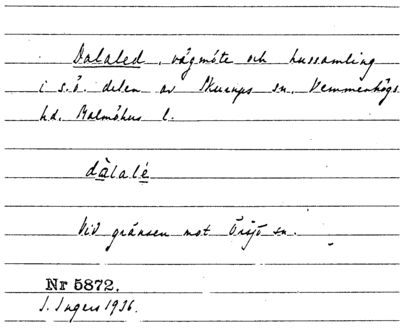 Dalaled, vägmöte och hussamling
i s.ö. delen av Skurups sn. Vemmenhögs
hd. Malmöhus l.
dàlalé
Vid gränsen mot Örsjö sn.
Nr 5872.
I. Ingers 1936.